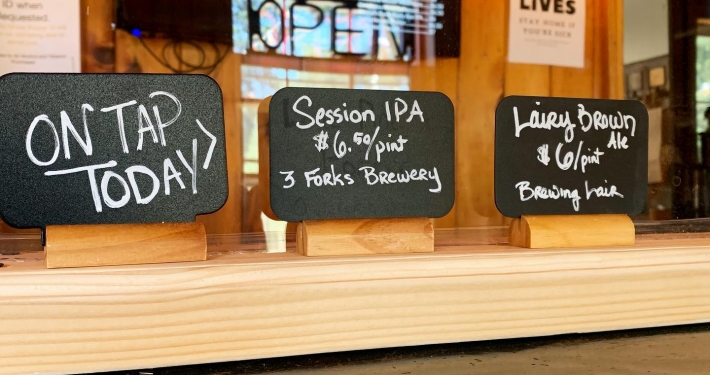 ID when
requested.
OPEN
LIVES
STAY HOME IF
YOU'RE SICK
ON TAP
TODAY >
Session IPA
$6.50/pint
3 Forks Brewery
Lairy Brown
Ale
$6/pint
Brewing Lair